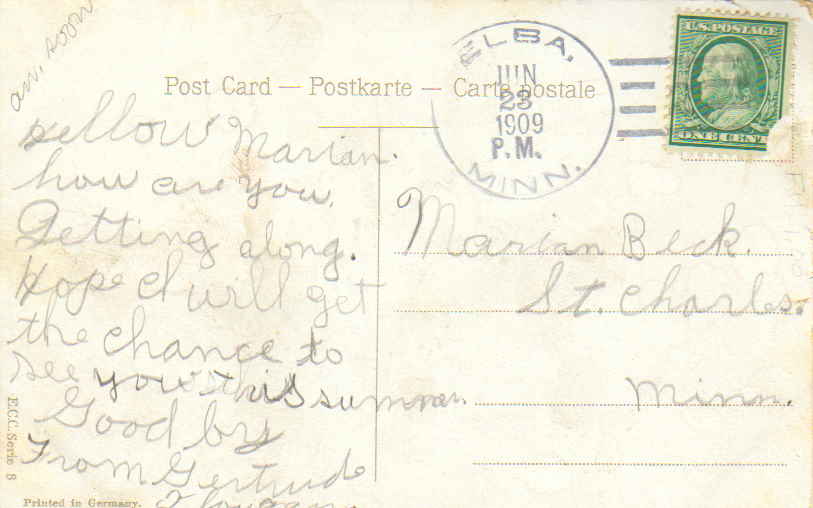 an, soon
Post Card — Postkarte — Carte postale
ELBA,
JUN
23
1909
P.M.
MINN.
U.S. POSTAGE
ONE CENT
hellow Marian.
how are you,
Getting along.
Hope I will get
the chance to
see you this summer.
Good by
From Gertrude
Marian Beck.
St. Charles.
Minn.
E.C.C. Serie 8
Printed in Germany.